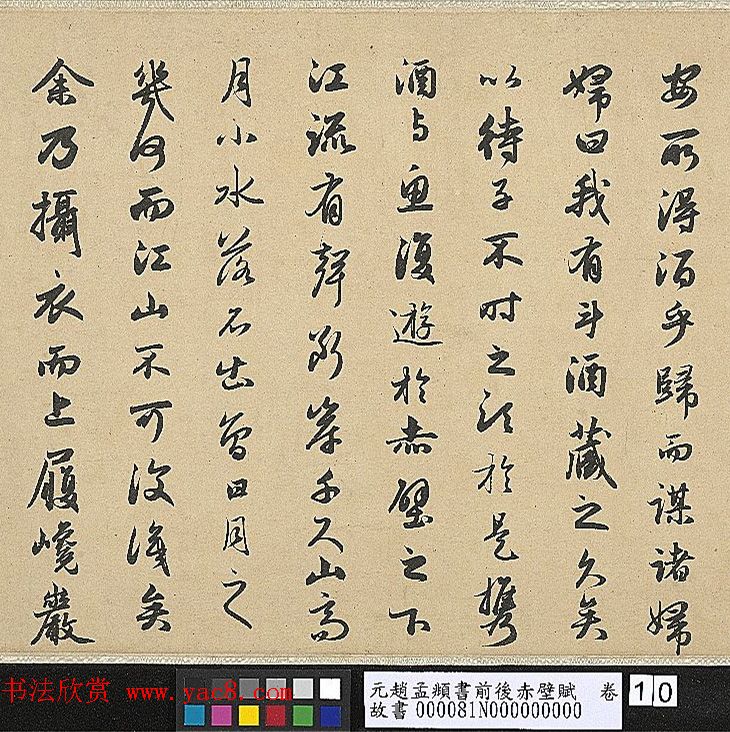 安所得酒乎歸而謀諸婦
婦曰我有斗酒藏之久矣
以待子不時之須於是攜
酒与魚復遊於赤壁之下
江流有聲斷岸千尺山高
月小水落石出曾日月之
幾何而江山不可復識矣
余乃攝衣而上履巉巖
书法欣赏 www.yac8.com
元趙孟頫書前後赤壁賦 卷 10
故書 000081N000000000